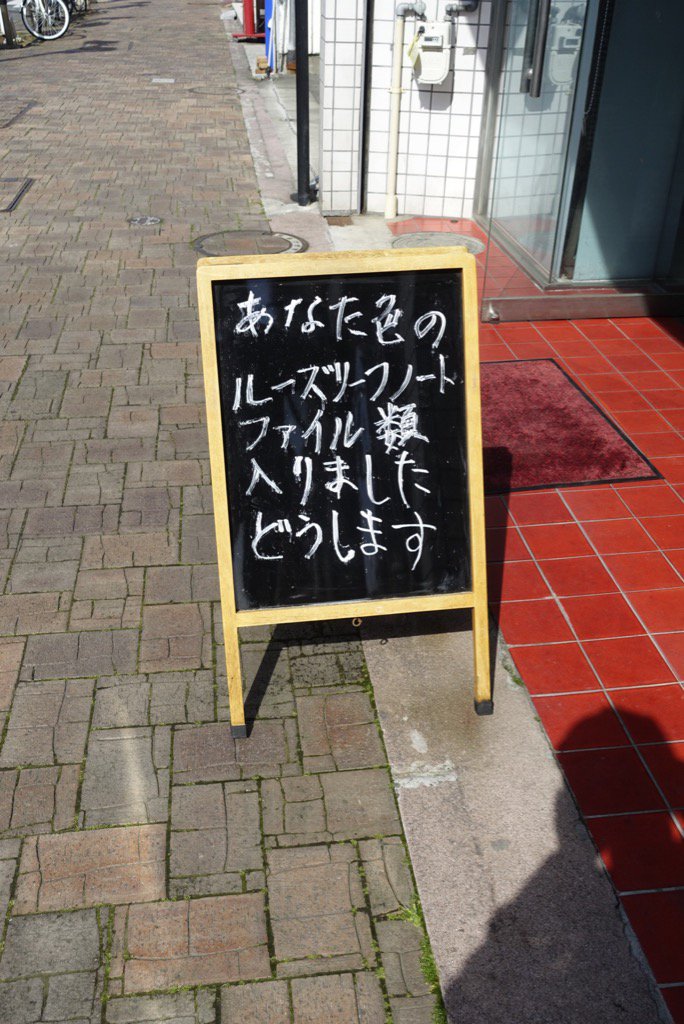 あなた色の
ルーズリーフノート
ファイル類
入りました
どうします